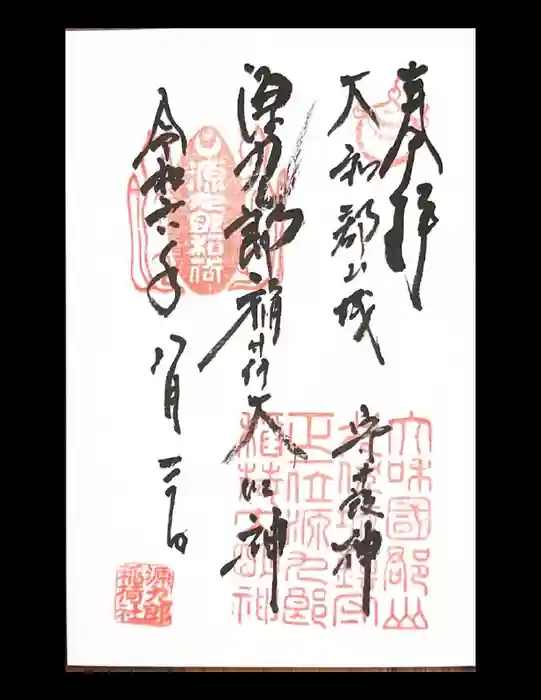 奉拝
大和郡山城
守護神
源九郎稲荷大明神
令和六年
八月三日
源九郎稲荷
大和國郡山
正一位源九郎
源九郎
稲荷社